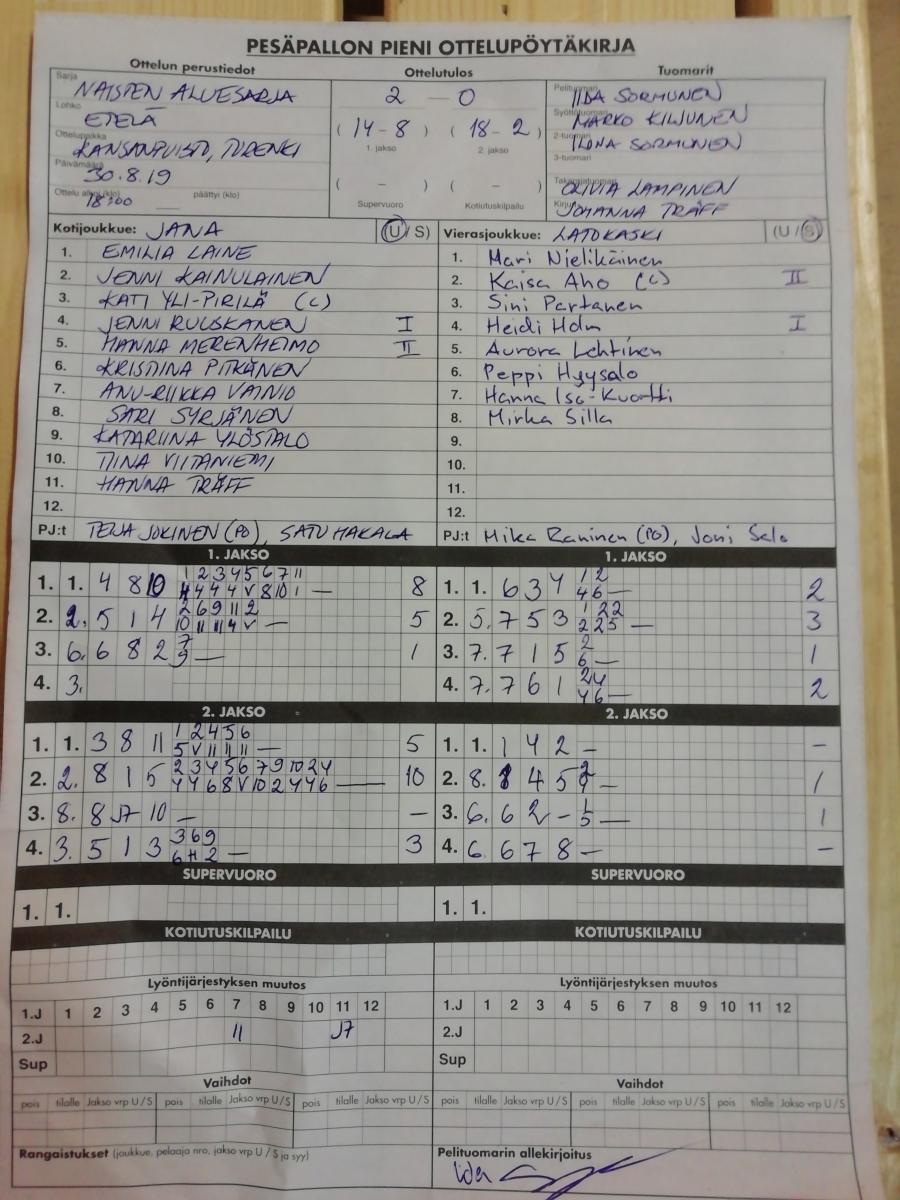 PESÄPALLON PIENI OTTELUPÖYTÄKIRJA
Ottelun perustiedot Ottelutulos Tuomarit
Sarja NAISTEN ALUESARJA 2 - 0 Pelituomari IIDA SORMUNEN
Lohko ETELÄ Syöttötuomari MARKO KILJUNEN
Ottelupaikka KANSANPUISTO, TURENKI (14-8) (18-2) 2-tuomari ILONA SORMUNEN
1. jakso 2. jakso 3-tuomari
Päivämäärä 30.8.19
Ottelu alkoi (klo) 18:00 päättyi (klo) ( - ) ( - ) Takarajatuomari OLIVIA LAMPINEN
Supervuoro Kotiutuskilpailu Kirjuri JOHANNA TRÄFF
Kotijoukkue: JANA (U / S) Vierasjoukkue: LATOKASKI (U / S)
1. EMILIA LAINE 1. Mari Nielikäinen
2. JENNI KAINULAINEN 2. Kaisa Aho (c) II
3. KATI YLI-PIRILÄ (C) 3. Sini Partanen
4. JENNI RUUSKANEN I 4. Heidi Holm I
5. HANNA MERENHEIMO II 5. Aurora Lehtinen
6. KRISTIINA PITKÄNEN 6. Peppi Hyysalo
7. ANU-RIIKKA VAINIO 7. Hanna Iso-Kuortti
8. SARI SYRJÄNEN 8. Mirka Silla
9. KATARIINA YLÖSTALO 9.
10. TIINA VIITANIEMI 10.
11. HANNA TRÄFF 11.
12. 12.
PJ:t TEIJA JOKINEN (PO), SATU HAKALA PJ:t Mika Raninen (PO), Joni Salo
1. JAKSO 1. JAKSO
1. 1. 4 8 10 1 2 3 4 5 6 7 11 8 1. 1. 6 3 4 1 2 2
4 4 4 4 V 8 10 1 — 4 6 —
2. 2. 5 1 4 2 6 9 11 2 5 2. 5. 7 5 3 1 2 2 3
10 11 11 4 V — 2 2 5 —
3. 6. 6 8 2 7 1 3. 7. 7 1 5 2 1
9 — 6 —
4. 3. 4. 7. 7 6 1 2 4 2
4 6 —
2. JAKSO 2. JAKSO
1. 1. 3 8 11 1 2 4 5 6 5 1. 1. 1 4 2 — —
5 V 11 11 11 —
2. 2. 8 1 5 2 3 4 5 6 7 9 10 2 4 10 2. 8. 8 4 5 — 1
4 4 6 8 V 10 2 4 4 6 —
3. 8. 8 J7 10 — — 3. 6. 6 2 - 1 1
5 —
4. 3. 5 1 3 3 6 9 3 4. 6. 6 7 8 — —
6 11 2 —
SUPERVUORO SUPERVUORO
1. 1. 1. 1.
KOTIUTUSKILPAILU KOTIUTUSKILPAILU
Lyöntijärjestyksen muutos Lyöntijärjestyksen muutos
1.J 1 2 3 4 5 6 7 8 9 10 11 12 1.J 1 2 3 4 5 6 7 8 9 10 11 12
2.J 11 J7 2.J
Sup Sup
Vaihdot Vaihdot
pois tilalle Jakso vrp U / S pois tilalle Jakso vrp U / S pois tilalle Jakso vrp U / S pois tilalle Jakso vrp U / S pois tilalle Jakso vrp U / S pois tilalle Jakso vrp U / S
Rangaistukset (joukkue, pelaaja nro, jakso vrp U / S ja syy) Pelituomarin allekirjoitus
Iida